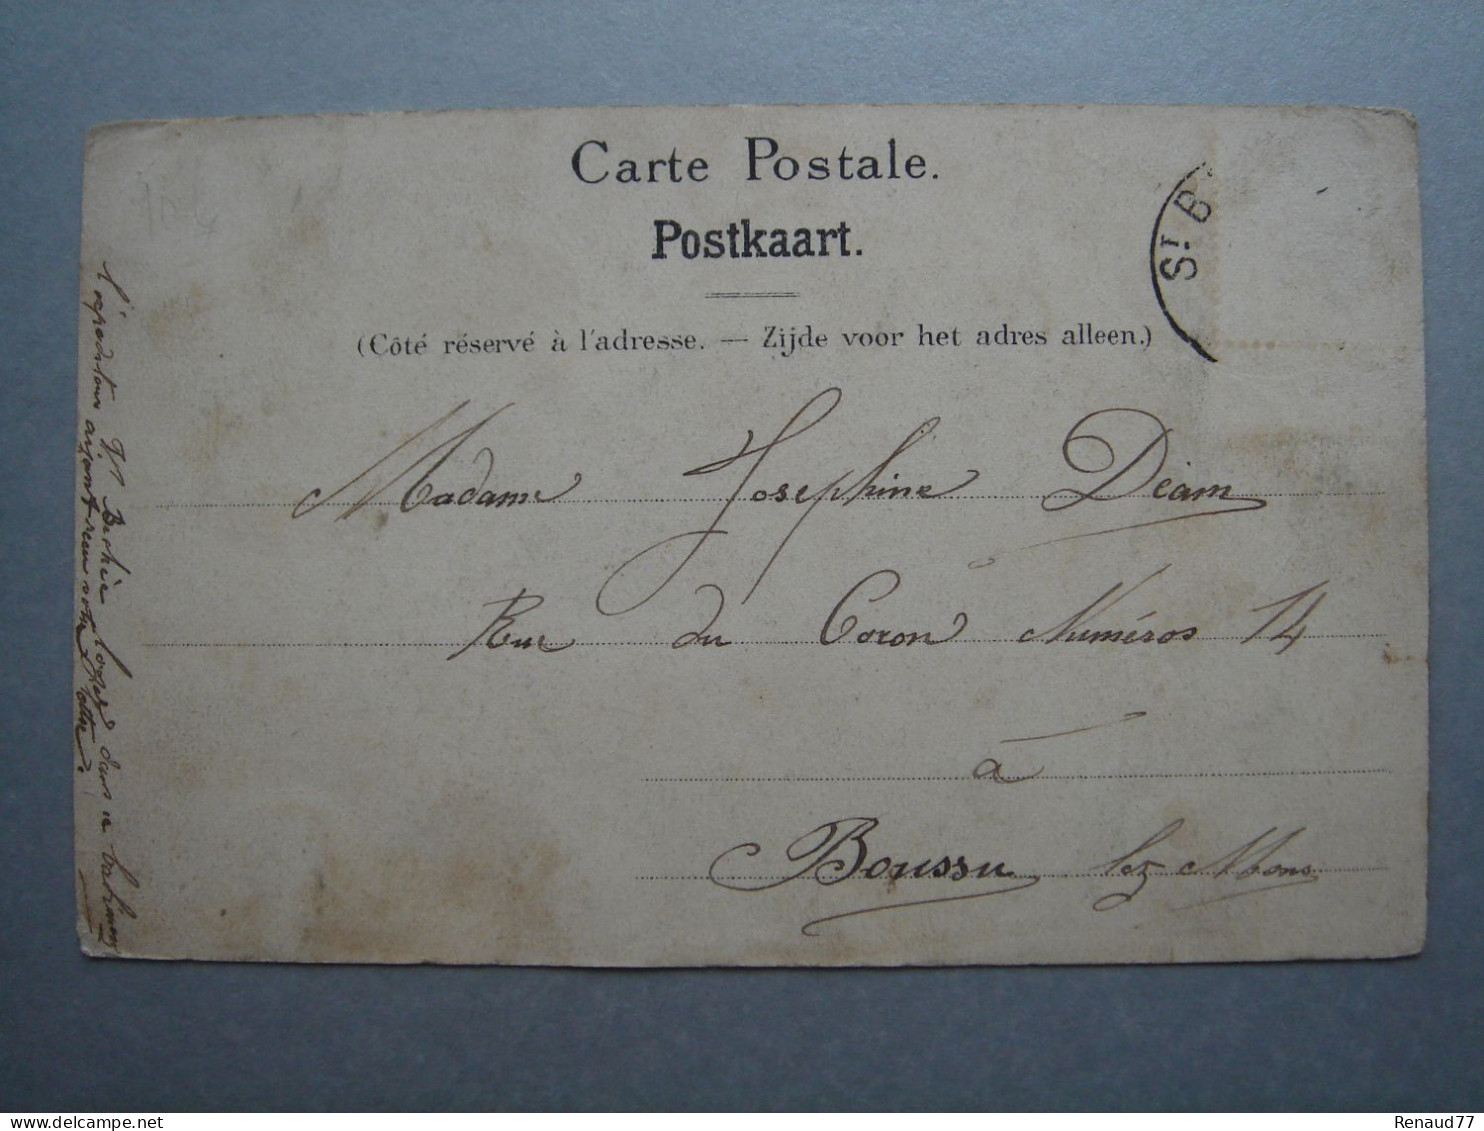 Carte Postale.
Postkaart.
(Côté réservé à l'adresse. — Zijde voor het adres alleen.)
St B
Madame Josephine Deam
Rue du Coron Numéros 14
à
Boussu lez Mons
logez dans
votre lettre.
delcampe.net
Renaud77